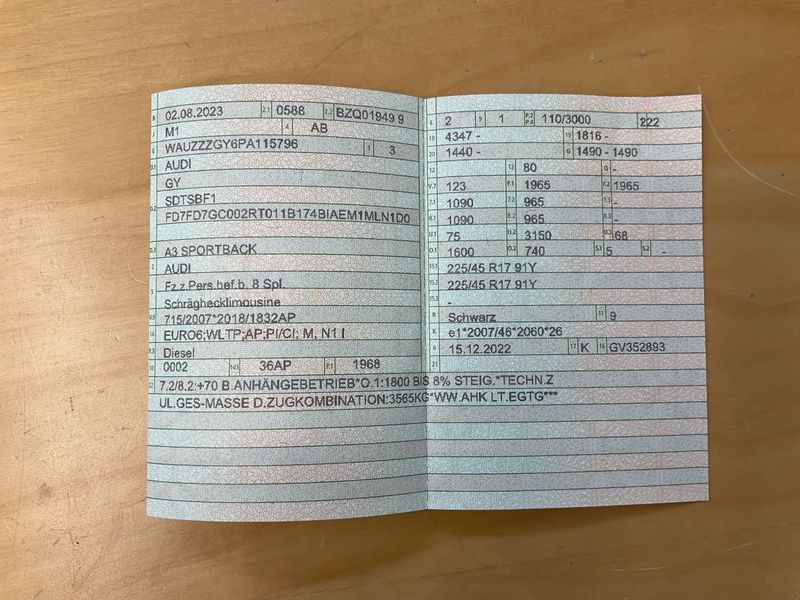 B 02.08.2023 2.1 0588 2.2 BZQ01949 9
J M1 4 AB
E WAUZZZGY6PA115796 3 3
D.1 AUDI
GY
D.2 SDTSBF1
FD7FD7GC002RT011B174BIAEM1MLN1D0
D.3 A3 SPORTBACK
2 AUDI
5 Fz.z.Pers.bef.b. 8 Spl.
Schräghecklimousine
V.9 715/2007*2018/1832AP
14 EURO6;WLTP;AP;PI/CI; M, N1 I
P.3 Diesel
10 0002 14.1 36AP P.1 1968
L 2 9 1 P.2 P.4 110/3000 222
18 4347 - 19 1816 -
20 1440 - G 1490 - 1490
12 13 80 Q -
V.7 123 F.1 1965 F.2 1965
7.1 1090 7.2 965 7.3 -
8.1 1090 8.2 965 8.3 -
U.1 75 U.2 3150 U.3 68
O.1 1600 O.2 740 S.1 5 S.2 -
15.1 225/45 R17 91Y
15.2 225/45 R17 91Y
15.3 -
R Schwarz 11 9
K e1*2007/46*2060*26
6 15.12.2022 17 K 16 GV352893
21
22 7.2/8.2:+70 B.ANHÄNGEBETRIEB*O.1:1800 BIS 8% STEIG.*TECHN.Z
UL.GES-MASSE D.ZUGKOMBINATION:3565KG*WW.AHK LT.EGTG***